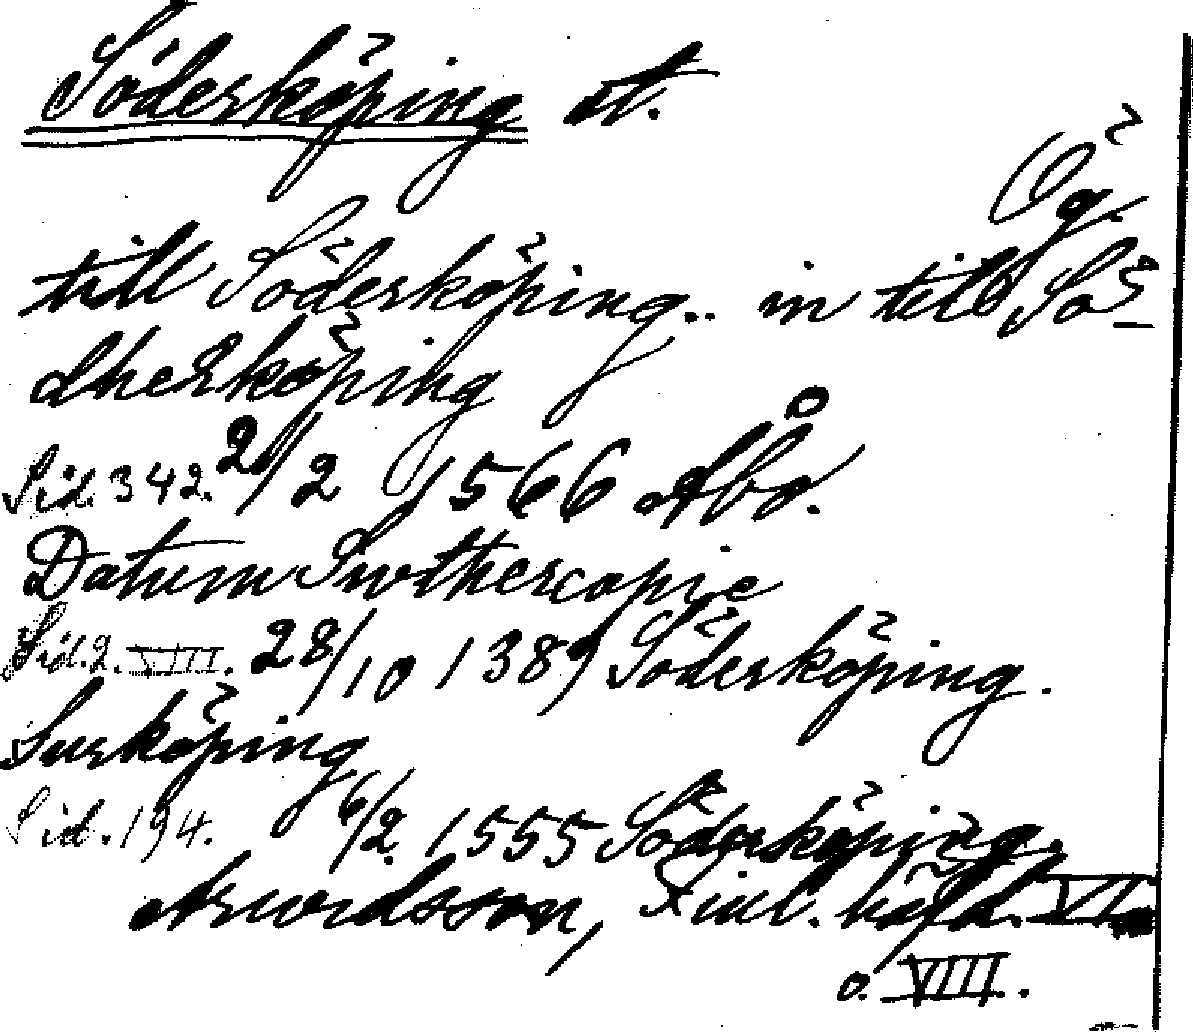 Söderköping st.
Ög.
till Söderköping.. in till Sö-
dherköping
Sid. 342. 21/2 1566 Åbo.
Datum Swthercopie
Sid. 2. VIII. 28/10 1389 Söderköping.
Surköping
Sid. 194. 6/2 1555 Söderköping.
Arwidsson, Finl. häfd. VI.
o. VIII.